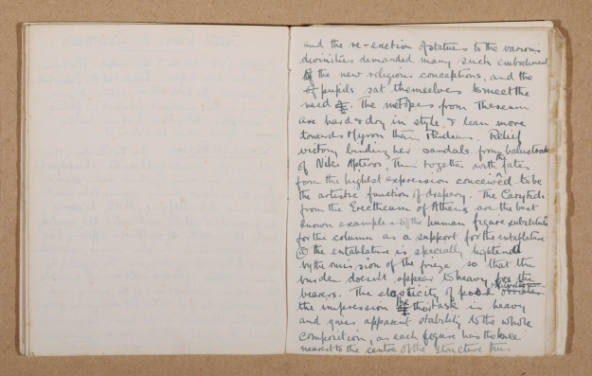 and the re-erection of statues to the various
divinities demanded many such embodiments
of the new religious conceptions, and the
pupils set themselves to meet the
need. The metopes from Theseum
are hard & dry in style & lean more
towards Myron than Phidias. Relief
victory binding her sandals from balustrade
of Niki Apteros, Thin together with the fates
form the highest expression conceived to be
the artistic function of drapery. The Caryatids
from the Erectheum of Athens are the best
known examples of the human figure substituted
for the column as a support for the entablature
the entablature is specially lightened
by the omission of the frieze so that the
burden doesn't appear to heavy for the
bearers. The elasticity of pose
the impression the task is heavy
and gives apparent stability to the whole
composition, as each figure has the knee
nearest to the centre of the structure